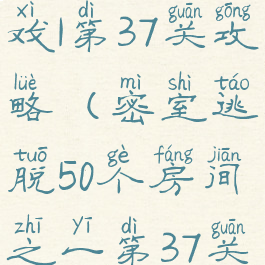 xì dì guān gōng
戏|第37关攻
lüè mì shì táo
略(密室逃
tuō gè fáng jiān
脱50个房间
zhī yī dì guān
之一第37关